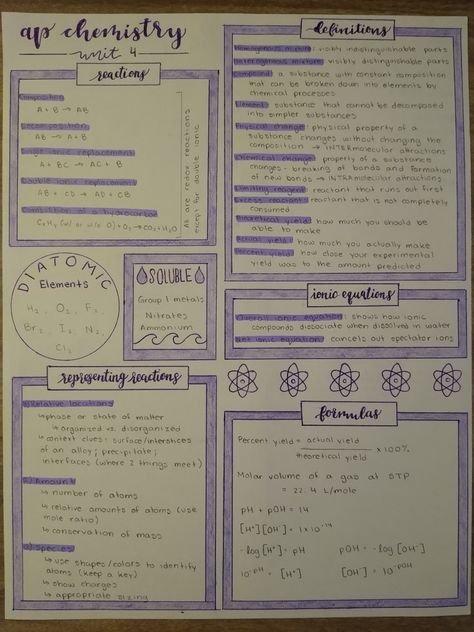 ap chemistry
unit 4
reactions
Composition
A + B → AB
Decomposition
AB → A + B
Single ionic replacement
A + BC → AC + B
Double ionic replacement
AB + CD → AD + CB
Combustion of a hydrocarbon
CxHy (w/ or w/o O) + O₂ → CO₂ + H₂O
All are redox reactions
except for double ionic
DIATOMIC
Elements
H₂, O₂, F₂,
Br₂, I₂, N₂,
Cl₂
SOLUBLE
Group 1 metals
Nitrates
Ammonium
representing reactions
1) Relative locations
↳ phase or state of matter
↳ organized vs. disorganized
↳ context clues: surface/interstices
of an alloy; precipitate;
interfaces (where 2 things meet)
2) Amount
↳ number of atoms
↳ relative amounts of atoms (use
mole ratio)
↳ conservation of mass
3) Species
↳ use shapes/colors to identify
atoms (keep a key)
↳ show charges
↳ appropriate sizing
definitions
Homogenous mixture: visibly indistinguishable parts
Heterogenous mixture: visibly distinguishable parts
Compound: a substance with constant composition
that can be broken down into elements by
chemical processes
Element: substance that cannot be decomposed
into simpler substances
Physical change: physical property of a
substance changes without changing the
composition → INTERmolecular attractions
Chemical change: property of a substance
changes - breaking of bonds and formation
of new bonds → INTRAmolecular attractions
Limiting reagent: reactant that runs out first
Excess reactant: reactant that is not completely
consumed
Theoretical yield: how much you should be
able to make
Actual yield: how much you actually make
Percent yield: how close your experimental
yield was to the amount predicted
ionic equations
Overall ionic equation: shows how ionic
compounds dissociate when dissolved in water
Net ionic equation: cancels out spectator ions
formulas
Percent yield = actual yield / theoretical yield x 100%
Molar volume of a gas at STP
= 22.4 L/mole
pH + pOH = 14
[H⁺][OH⁻] = 1x10⁻¹⁴
-log[H⁺] = pH pOH = -log[OH⁻]
10⁻ᵖᴴ = [H⁺] [OH⁻] = 10⁻ᵖᴼᴴ